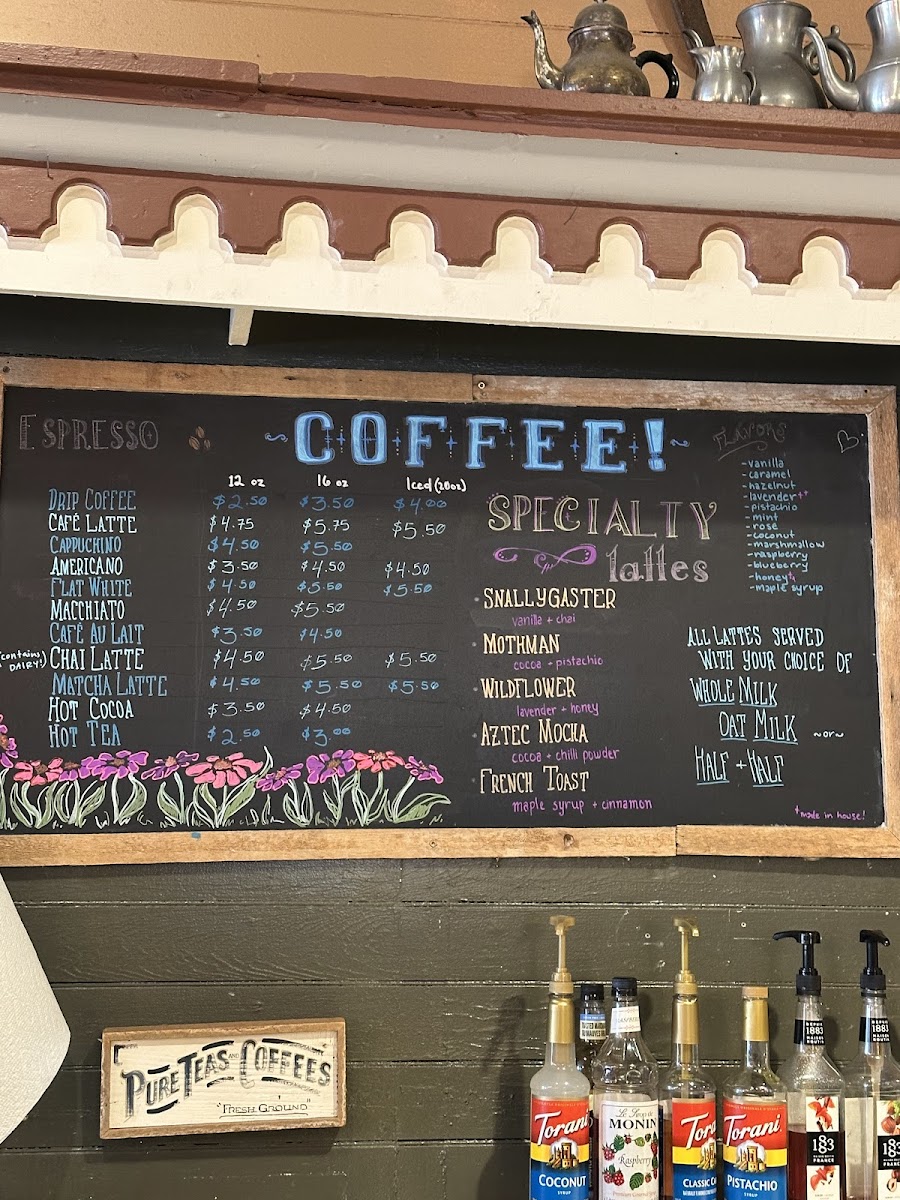 ESPRESSO
COFFEE!
12 oz 16 oz Iced (20oz)
DRIP COFFEE $2.50 $3.50 $4.00
CAFÉ LATTE $4.75 $5.75 $5.50
CAPPUCHINO $4.50 $5.50
AMERICANO $3.50 $4.50 $4.50
FLAT WHITE $4.50 $5.50 $5.50
MACCHIATO $4.50 $5.50
CAFÉ AU LAIT $3.50 $4.50
(contains DAIRY!) CHAI LATTE $4.50 $5.50 $5.50
MATCHA LATTE $4.50 $5.50 $5.50
HOT COCOA $3.50 $4.50
HOT TEA $2.50 $3.00
SPECIALTY
lattes
SNALLYGASTER
vanilla + chai
MOTHMAN
cocoa + pistachio
WILDFLOWER
lavender + honey
AZTEC MOCHA
cocoa + chilli powder
FRENCH TOAST
maple syrup + cinnamon
FLAVORS
-vanilla
-caramel
-hazelnut
-lavender
-pistachio
-mint
-rose
-coconut
-marshmallow
-raspberry
-blueberry
-honey
-maple syrup
ALL LATTES SERVED
WITH YOUR CHOICE OF
WHOLE MILK
OAT MILK ~or~
HALF + HALF
made in house!
PURE TEAS AND COFFEES
"FRESH GROUND"
Torani
COCONUT
SYRUP
MONIN
Raspberry
Torani
CLASSIC
Torani
PISTACHIO
SYRUP
DEPUIS
1883
MAISON ROUTIN
1883
FRANCE
DEPUIS
1883
MAISON ROUTIN